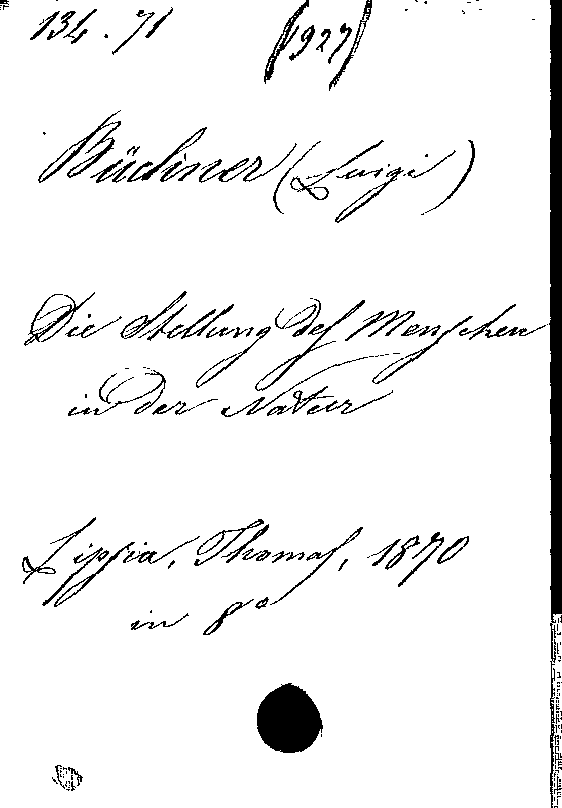 134.71 (927)
Büchner (Luigi)
Die Stellung des Menschen
in der Natur
Lipsia, Thomas, 1870
in 8°